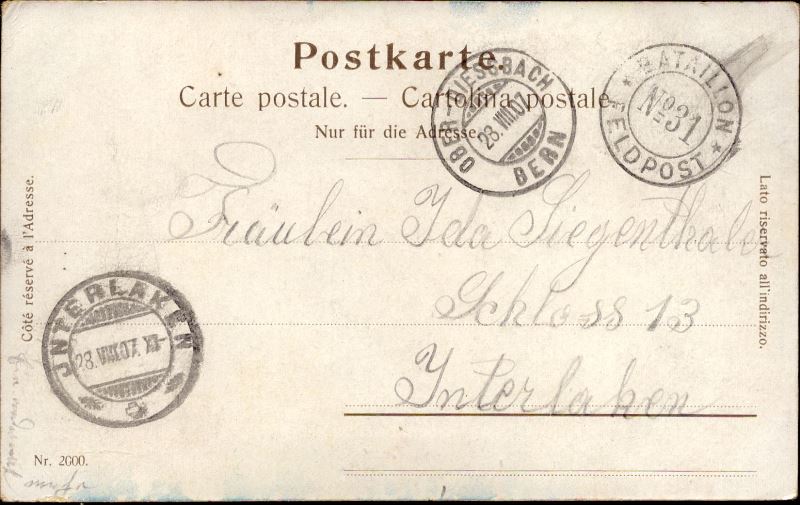 Postkarte.
Carte postale. — Cartolina postale
Nur für die Adresse.
OBER-DIESSBACH
28.VIII.07
BERN
BATAILLON
No 31
FELDPOST
Fräulein Ida Siegenthaler
Schloss 13
Interlaken
JNTERLAKEN
28.VIII.07. XI-
Côté réservé à l'Adresse.
Lato riservato all'indirizzo.
Nr. 2600.